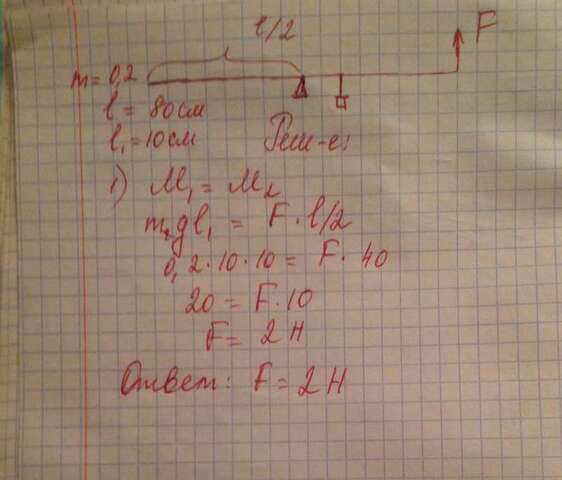 l/2
F
m = 0,2
l = 80 см
l₁ = 10 см
Реш-е:
1) M₁ = M₂
m₁gl₁ = F · l/2
0,2 · 10 · 10 = F · 40
20 = F · 10
F = 2 Н
Ответ: F = 2 Н